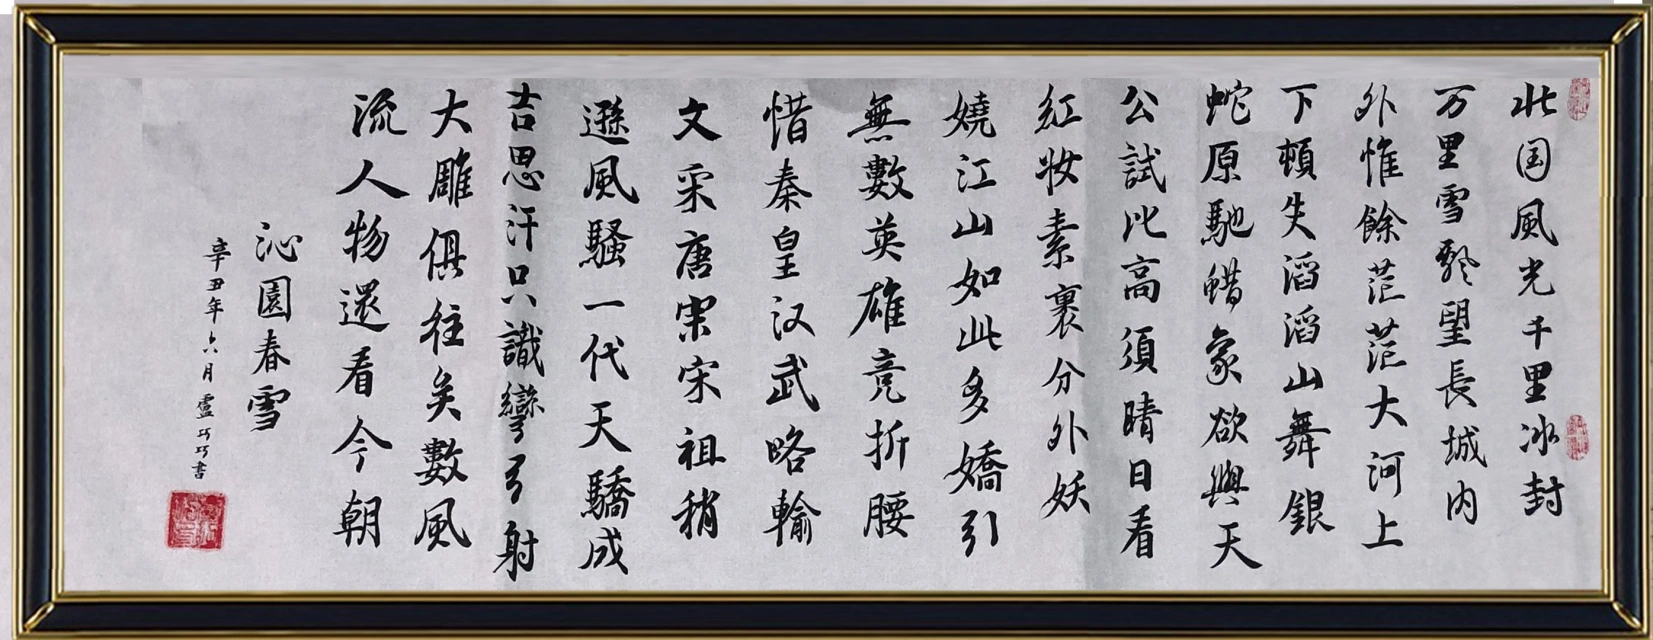 北国風光千里冰封
万里雪飄望長城内
外惟餘茫茫大河上
下頓失滔滔山舞銀
蛇原馳蜡象欲與天
公試比高須晴日看
紅妆素裹分外妖
嬈江山如此多嬌引
無數英雄竞折腰
惜秦皇汉武略輸
文采唐宗宋祖稍
遜風騷一代天驕成
吉思汗只識彎弓射
大雕俱往矣數風
流人物還看今朝
沁園春雪
辛丑年六月盧巧巧書